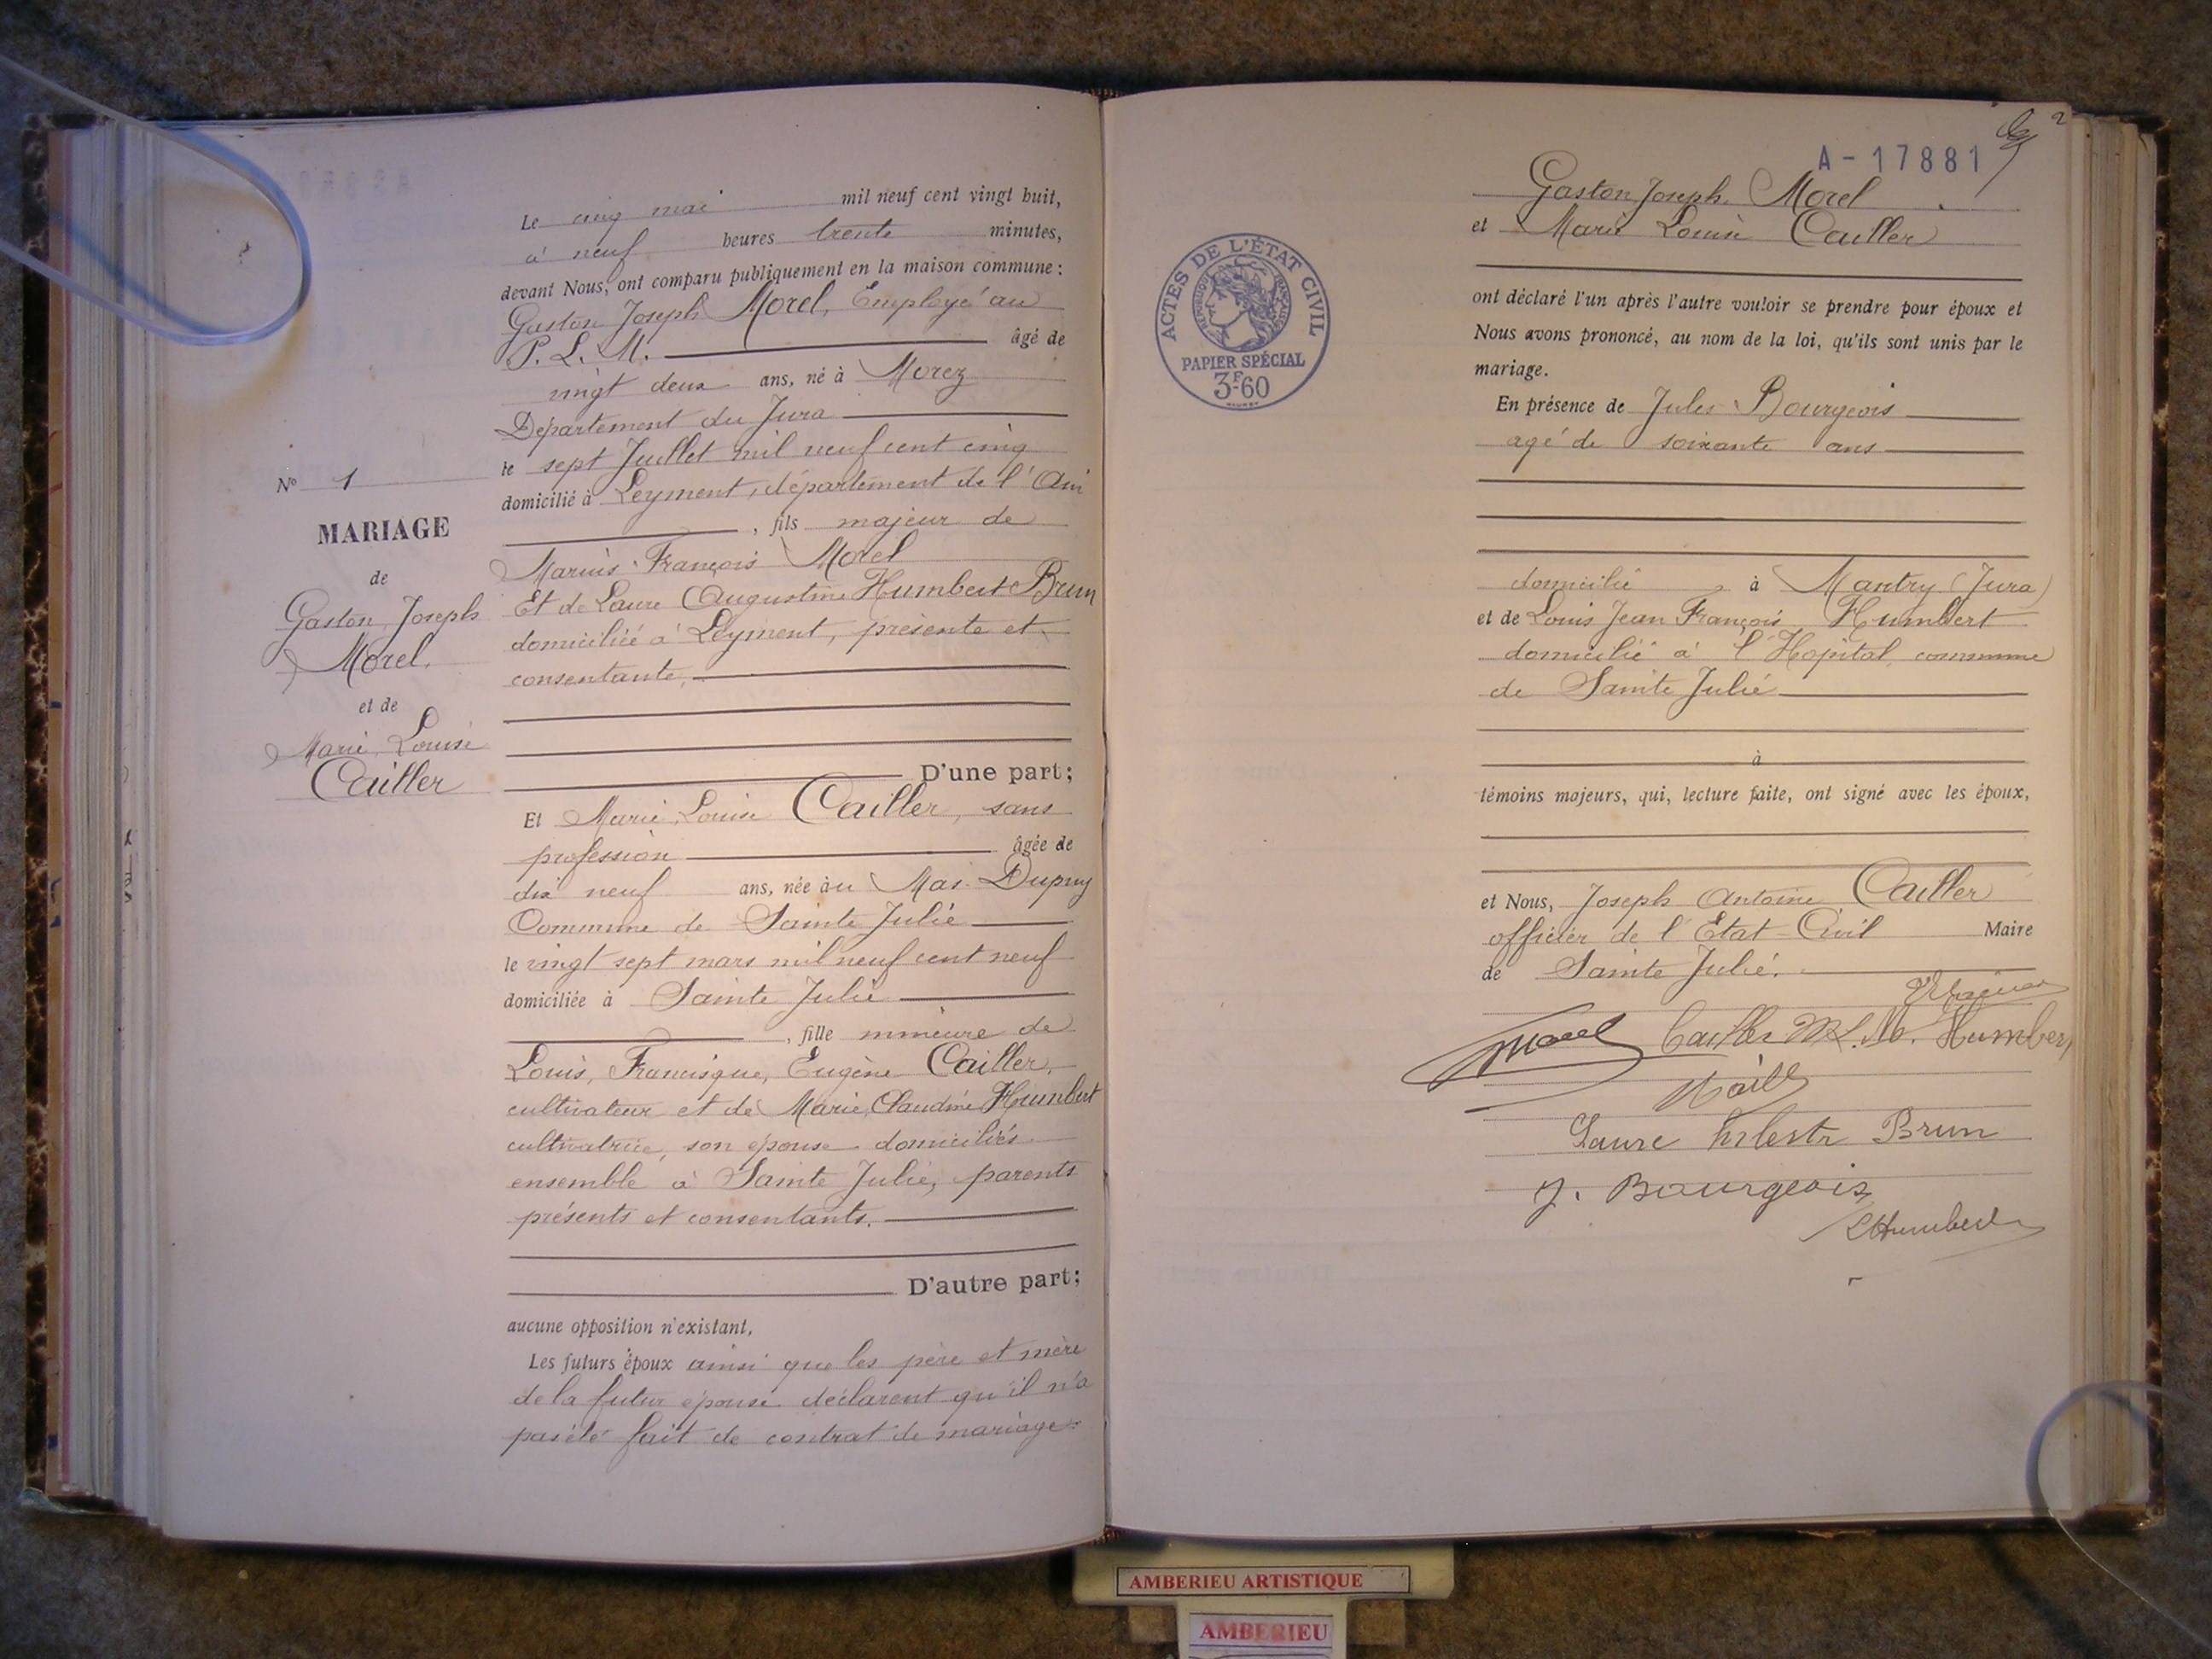 N° 1
MARIAGE
de
Gaston Joseph
Morel.
et de
Marie Louise
Cailler
Le cinq mai mil neuf cent vingt huit,
à neuf heures trente minutes,
devant Nous, ont comparu publiquement en la maison commune :
Gaston Joseph Morel, Employé au
P. L. M. âgé de
vingt deux ans, né à Morez
Département du Jura
le sept Juillet mil neuf cent cinq
domicilié à Leyment, département de l'Ain
, fils majeur de
Marius François Morel
Et de Laure Augustine Humbert Brun
domiciliée à Leyment, présente et
consentante,
D'une part;
Et Marie Louise Cailler, sans
profession âgée de
dix neuf ans, née au Mas Dupuy
Commune de Sainte Julie
le vingt sept mars mil neuf cent neuf
domiciliée à Sainte Julie
, fille mineure de
Louis, Francisque, Eugène Cailler,
cultivateur et de Marie, Claudine Humbert
cultivatrice, son épouse domiciliés
ensemble à Sainte Julie, parents
présents et consentants.
D'autre part;
aucune opposition n'existant,
Les futurs époux ainsi que les père et mère
de la futur épouse déclarent qu'il n'a
pas été fait de contrat de mariage.
2
A-17881
Gaston Joseph Morel
et Marie Louise Cailler
ont déclaré l'un après l'autre vouloir se prendre pour époux et
Nous avons prononcé, au nom de la loi, qu'ils sont unis par le
mariage.
ACTES DE L'ÉTAT CIVIL
RÉPUBLIQUE FRANÇAISE
PAPIER SPÉCIAL
3F60
En présence de Jules Bourgeois
agé de soixante ans
domicilié à Mantry (Jura)
et de Louis Jean François Humbert
domicilié à l'Hopital, commune
de Sainte Julie
à
témoins majeurs, qui, lecture faite, ont signé avec les époux,
et Nous, Joseph Antoine Cailler
officier de l'Etat-Civil Maire
de Sainte Julie.
Morel Cailler M L. M. Humbert
Laure Brun
J. Bourgeois
L Humbert
AMBERIEU ARTISTIQUE
AMBERIEU